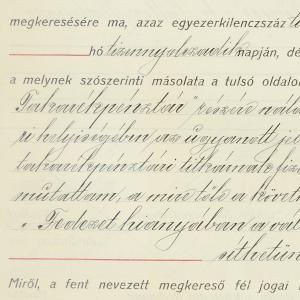 megkeresésére ma, azaz egyezerkilenczszáz
hó tizennyolczadik napján, dé
a melynek szószerinti másolata a tulsó oldalon
Takarékpénztár" részére nálá
ri helyiségében, az ugyanott jel
takarékpénztári titkárnak fize
mutattam, a mire tőle a követk
"Fedezet hiányában a val
sithetün
Miről, a fent nevezett megkereső fél jogai a